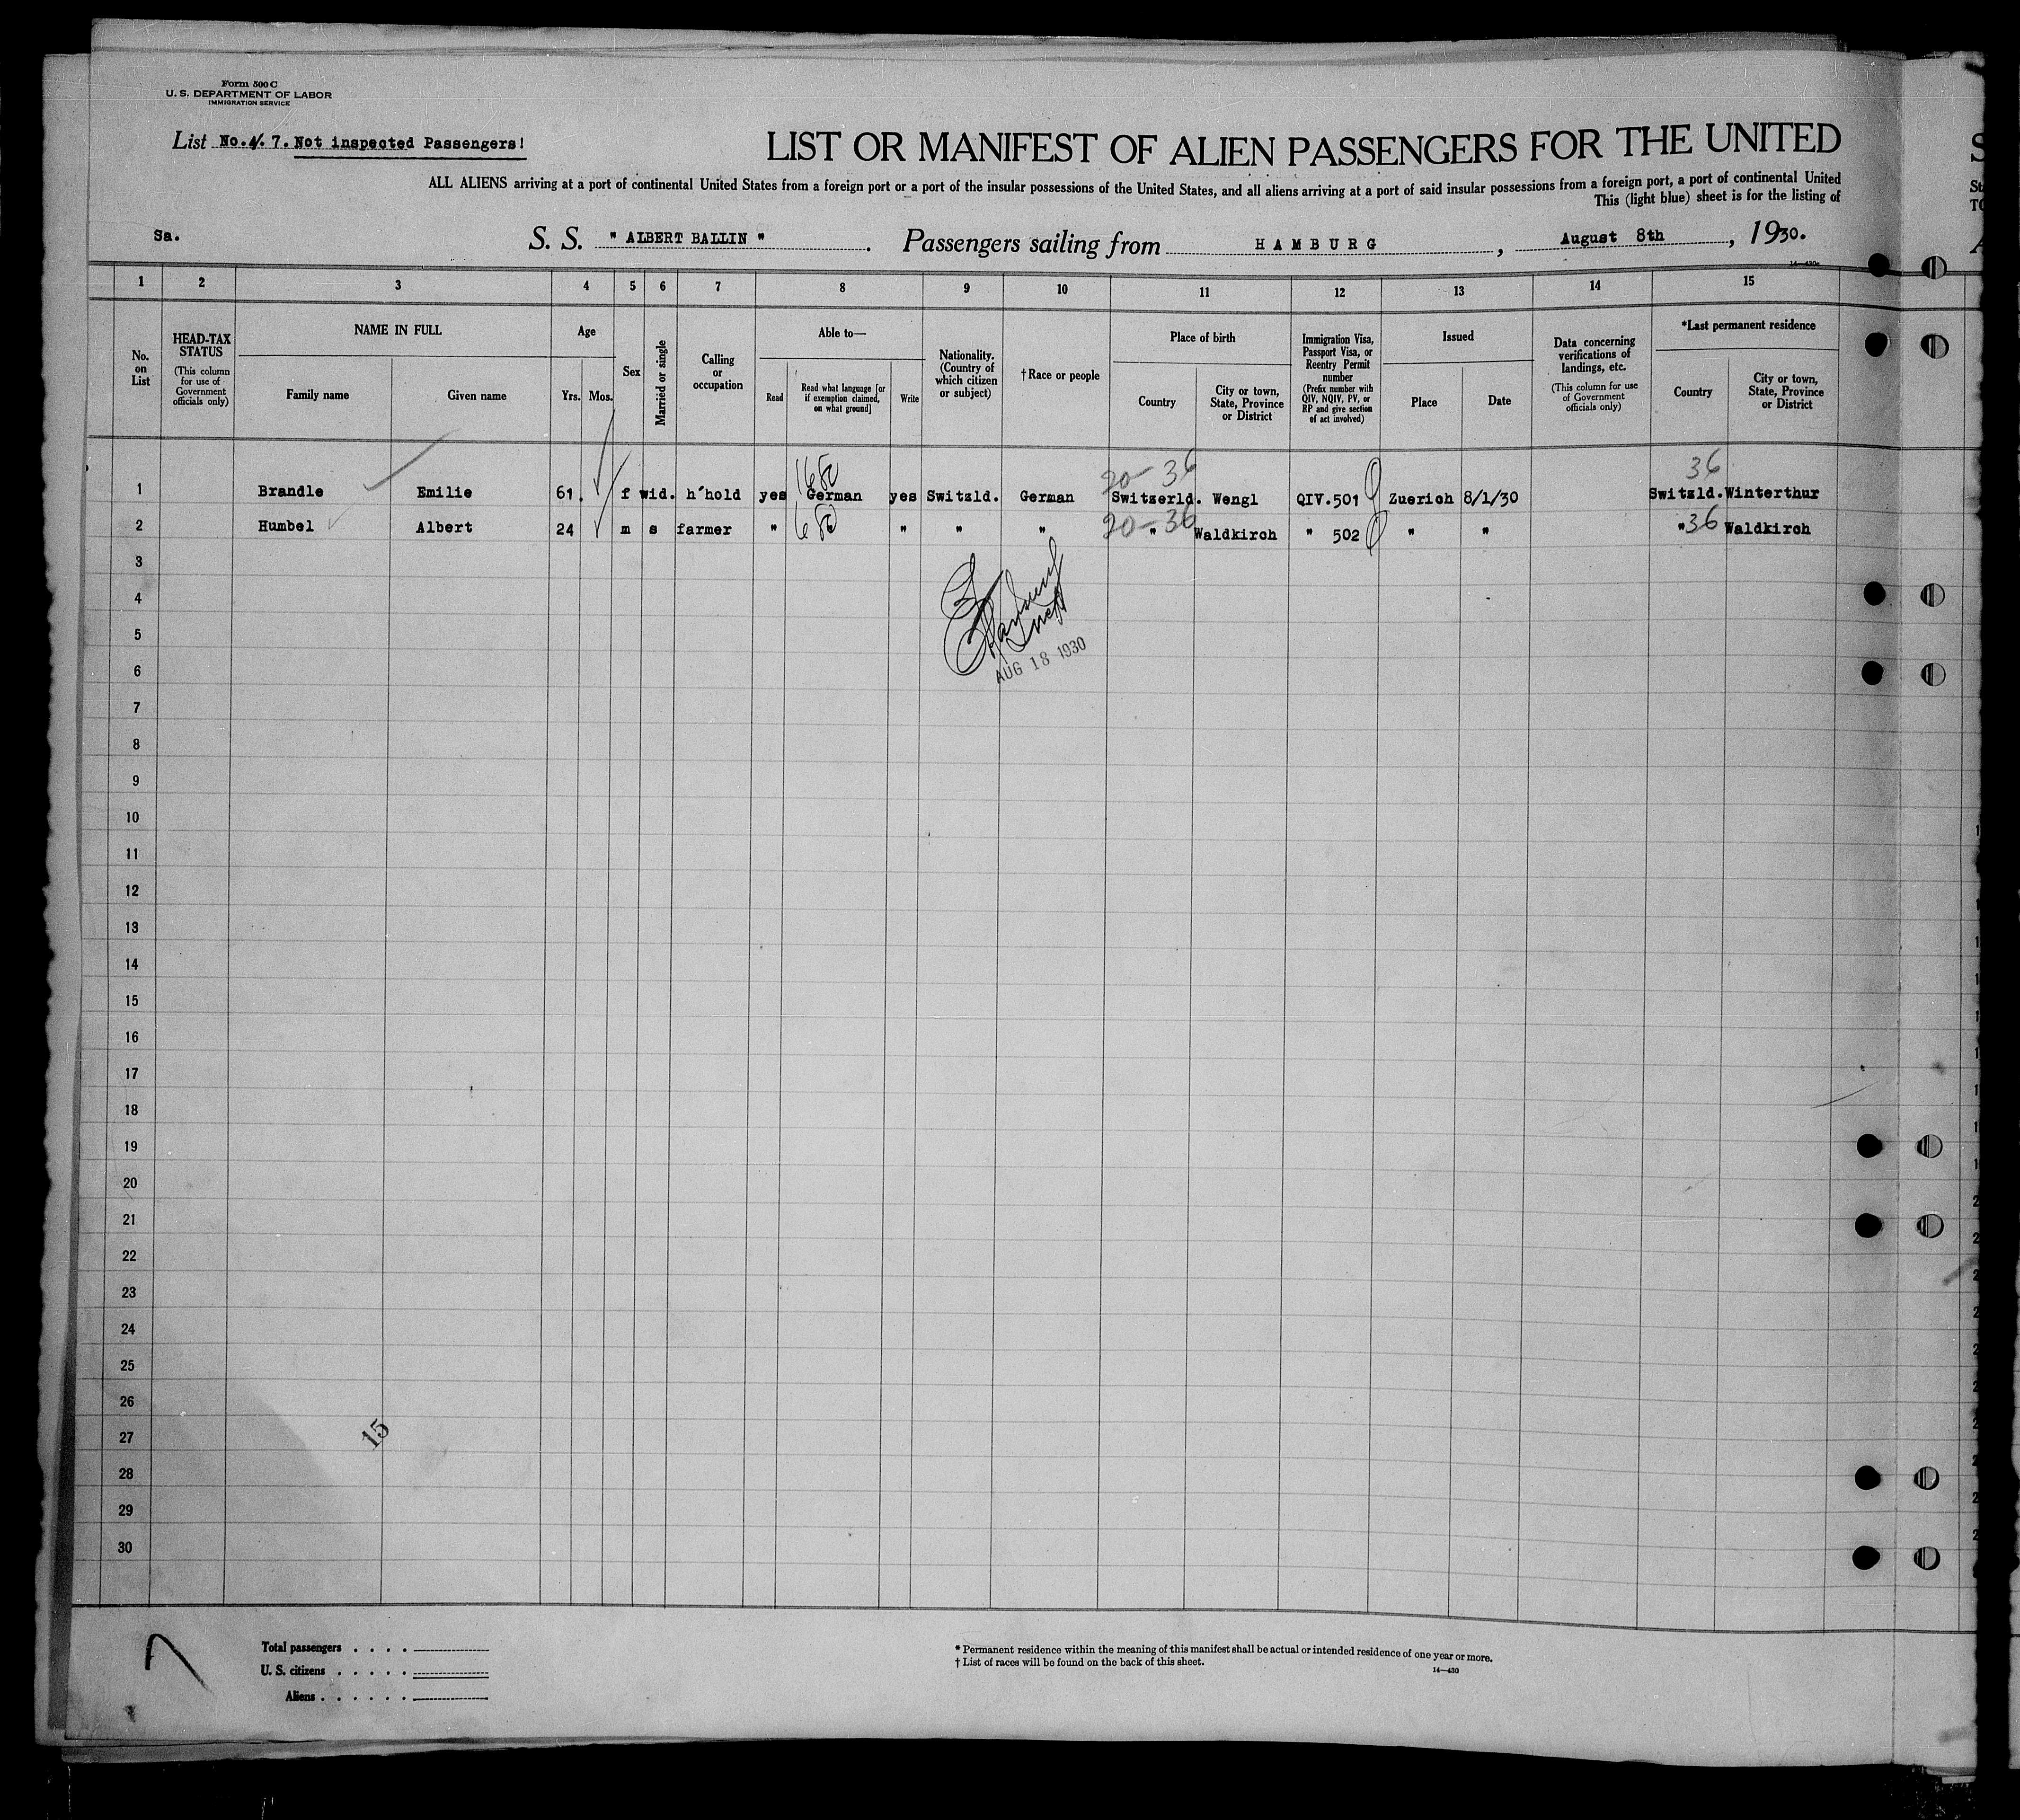 Form 500 C
U. S. DEPARTMENT OF LABOR
IMMIGRATION SERVICE
List No. 7. Not inspected Passengers!
LIST OR MANIFEST OF ALIEN PASSENGERS FOR THE UNITED
ALL ALIENS arriving at a port of continental United States from a foreign port or a port of the insular possessions of the United States, and all aliens arriving at a port of said insular possessions from a foreign port, a port of continental United
This (light blue) sheet is for the listing of
Sa.
S. S. " ALBERT BALLIN ". Passengers sailing from HAMBURG, August 8th, 1930.
1 2 3 4 5 6 7 8 9 10 11 12 13 14 15
No. on List
HEAD-TAX STATUS
(This column for use of Government officials only)
NAME IN FULL
Family name
Given name
Age
Yrs. Mos.
Sex
Married or single
Calling or occupation
Able to—
Read
Read what language [or if exemption claimed, on what ground]
Write
Nationality. (Country of which citizen or subject)
†Race or people
Place of birth
Country
City or town, State, Province or District
Immigration Visa, Passport Visa, or Reentry Permit number
(Prefix number with QIV, NQIV, PV, or RP and give section of act involved)
Issued
Place
Date
Data concerning verifications of landings, etc.
(This column for use of Government officials only)
*Last permanent residence
Country
City or town, State, Province or District
20-36 36
1 Brandle Emilie 61. f wid. h'hold yes German yes Switzld. German Switzerld. Wengl QIV.501 Zuerich 8/1/30 Switzld. Winterthur
2 Humbel Albert 24 m s farmer " " " " " 20-36 " Waldkirch " 502 " " " 36 Waldkirch
3
4
5
6
AUG 18 1930
7
8
9
10
11
12
13
14
15
16
17
18
19
20
21
22
23
24
25
26
27
15
28
29
30
Total passengers . . . .
U. S. citizens . . . . .
Aliens . . . . . .
* Permanent residence within the meaning of this manifest shall be actual or intended residence of one year or more.
† List of races will be found on the back of this sheet.
14—430